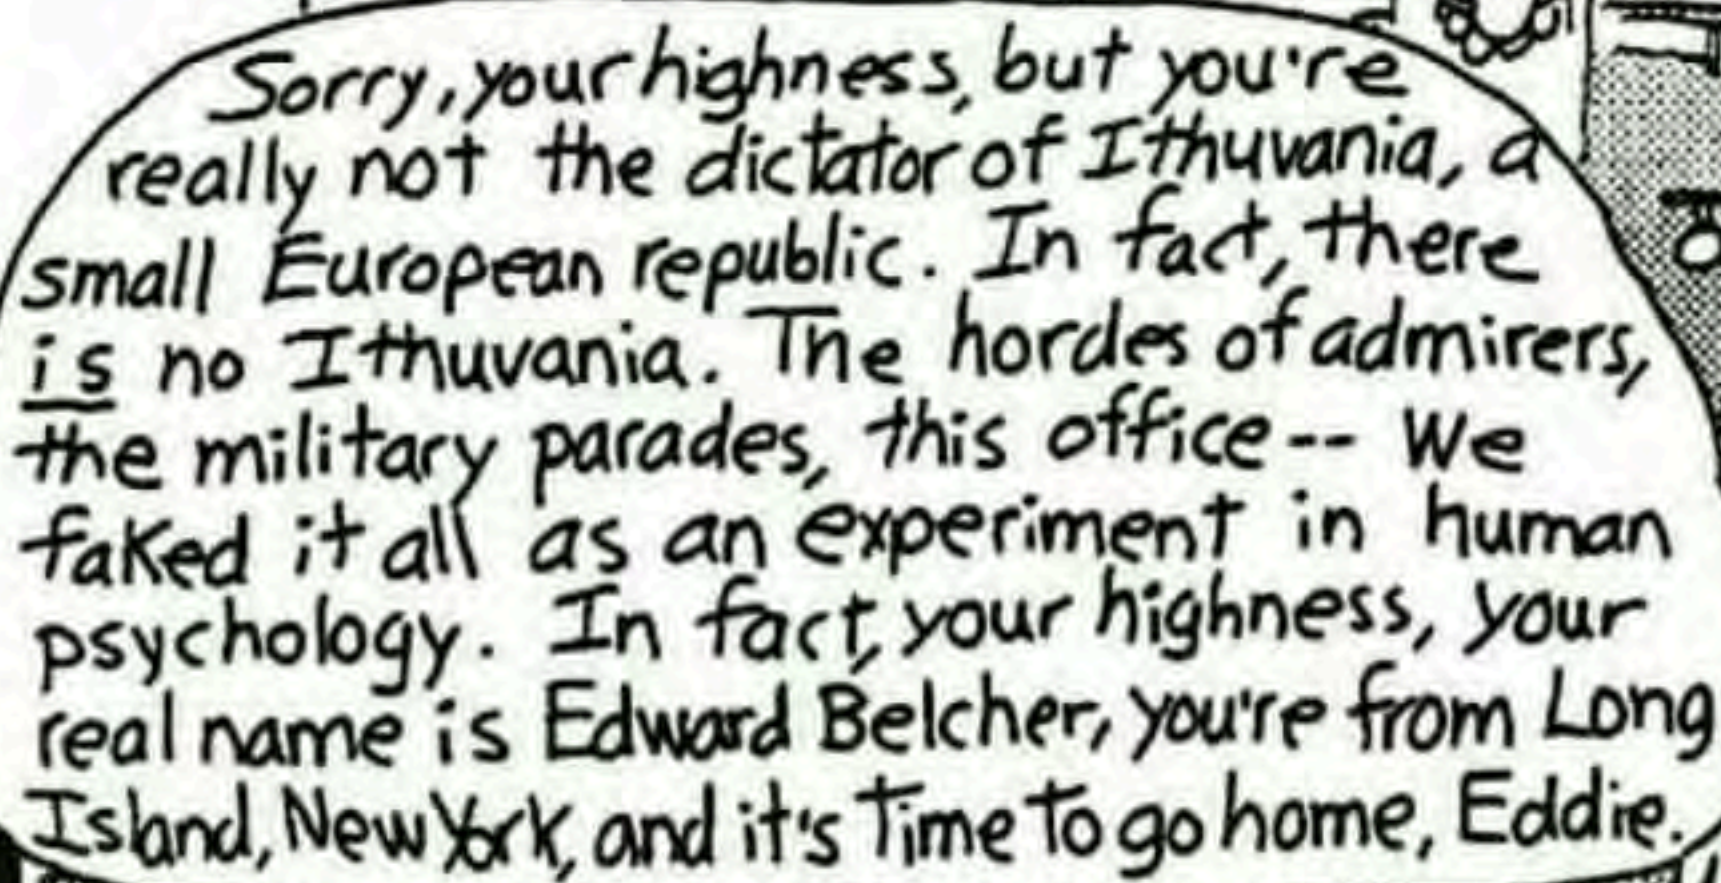 Sorry, your highness, but you're
really not the dictator of Ithuvania, a
small European republic. In fact, there
is no Ithuvania. The hordes of admirers,
the military parades, this office-- We
faked it all as an experiment in human
psychology. In fact, your highness, your
real name is Edward Belcher, you're from Long
Island, New York, and it's time to go home, Eddie.